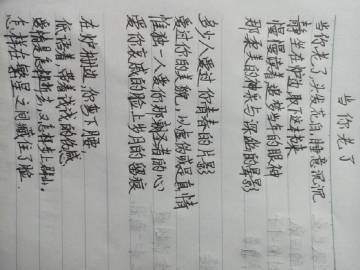 当你老了
当你老了,头发花白,睡意沉沉
静坐在炉边,取下这本书来
慢慢读着,追寻当年的眼神
那柔美的神采与深幽的晕影
多少人爱过你青春的片影
爱过你的美貌,以虚伪或是真情
惟独一人爱你那朝圣者的心
爱你衰戚的脸上岁月的留痕
在炉栅边,你弯下腰,
低语着,带着浅浅的伤感
爱情是怎样逝去,又怎样步上群山
怎样在繁星之间藏住了脸.